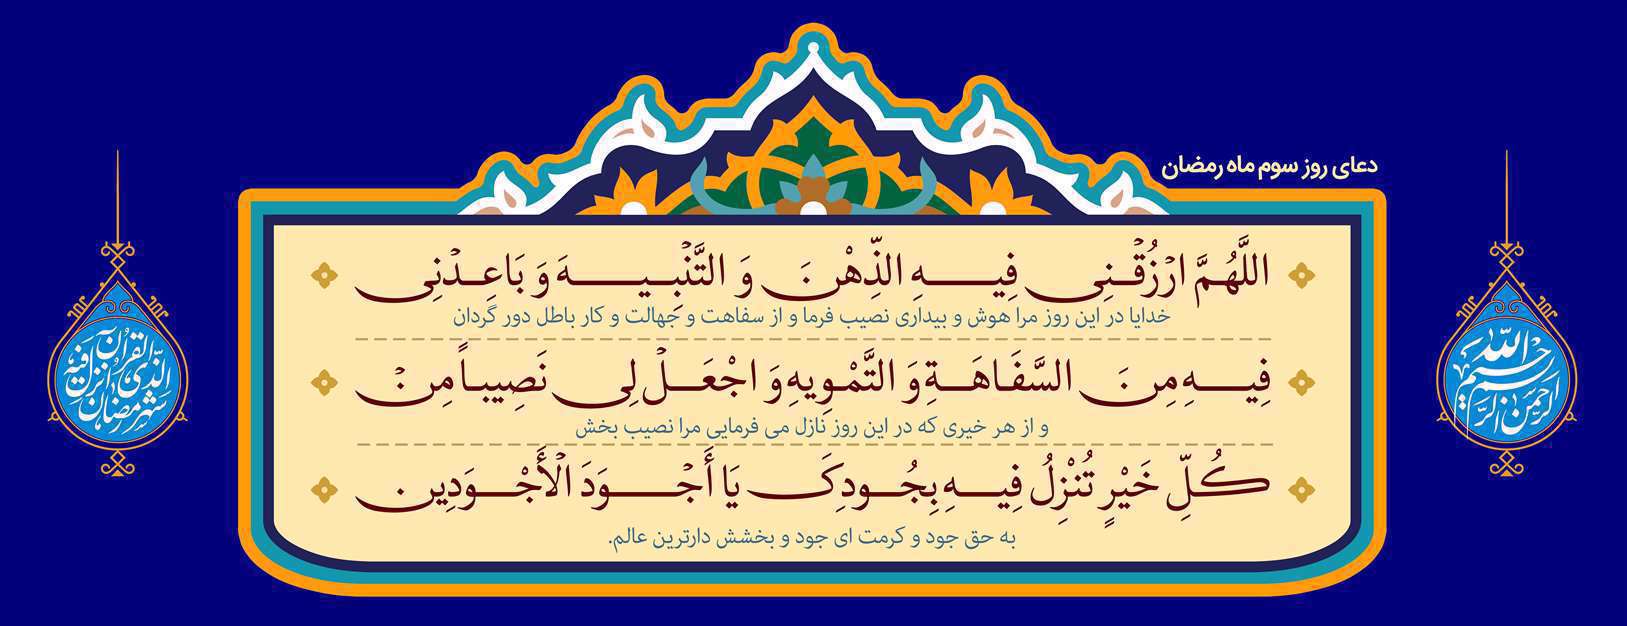 دعای روز سوم ماه رمضان
اللَّهُمَّ ارْزُقْنِی فِیهِ الذِّهْنَ وَ التَّنْبِیهَ وَ بَاعِدْنِی
خدایا در این روز مرا هوش و بیداری نصیب فرما و از سفاهت و جهالت و کار باطل دور گردان
فِیهِ مِنَ السَّفَاهَةِ وَ التَّمْوِیهِ وَ اجْعَلْ لِی نَصِیباً مِنْ
و از هر خیری که در این روز نازل می فرمایی مرا نصیب بخش
کُلِّ خَیْرٍ تُنْزِلُ فِیهِ بِجُودِکَ یَا أَجْوَدَ الْأَجْوَدِینَ
به حق جود و کرمت ای جود و بخشش دارترین عالم.
الله الرحمن الرحیم
شهر رمضان الذی انزل فیه القرآن